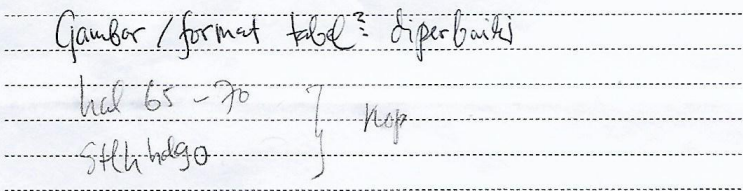 Gambar / format tabel² : diperbaiki
hal 65 - 70
Stlh hal 90 } kop